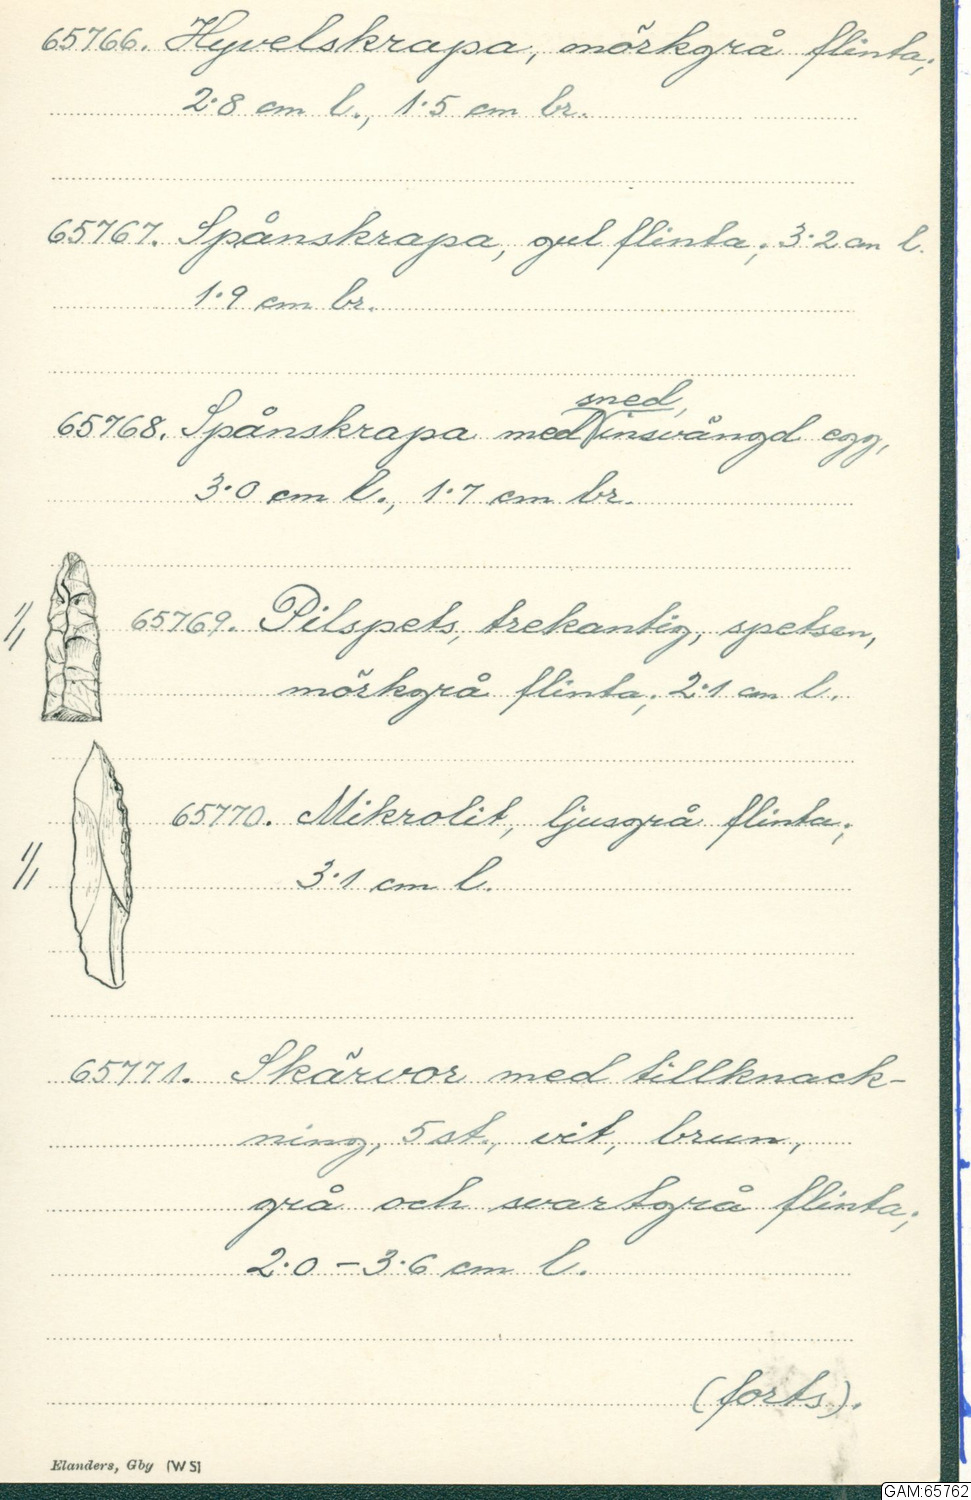 65766. Hyvelskrapa, mörkgrå flinta;
2·8 cm l., 1·5 cm br.
65767. Spånskrapa, gul flinta; 3·2 cm l.
1·9 cm br.
sned,
65768. Spånskrapa med insvängd egg,
3·0 cm l., 1·7 cm br.
1/1 65769. Pilspets, trekantig, spetsen,
mörkgrå flinta; 2·1 cm l.
65770. Mikrolit, ljusgrå flinta;
1/1 3·1 cm l.
65771. Skärvor med tillknack-
ning, 5 st., vit, brun,
grå och svartgrå flinta;
2·0 – 3·6 cm l.
(forts).
Elanders, Gby (WS)
GAM:65762